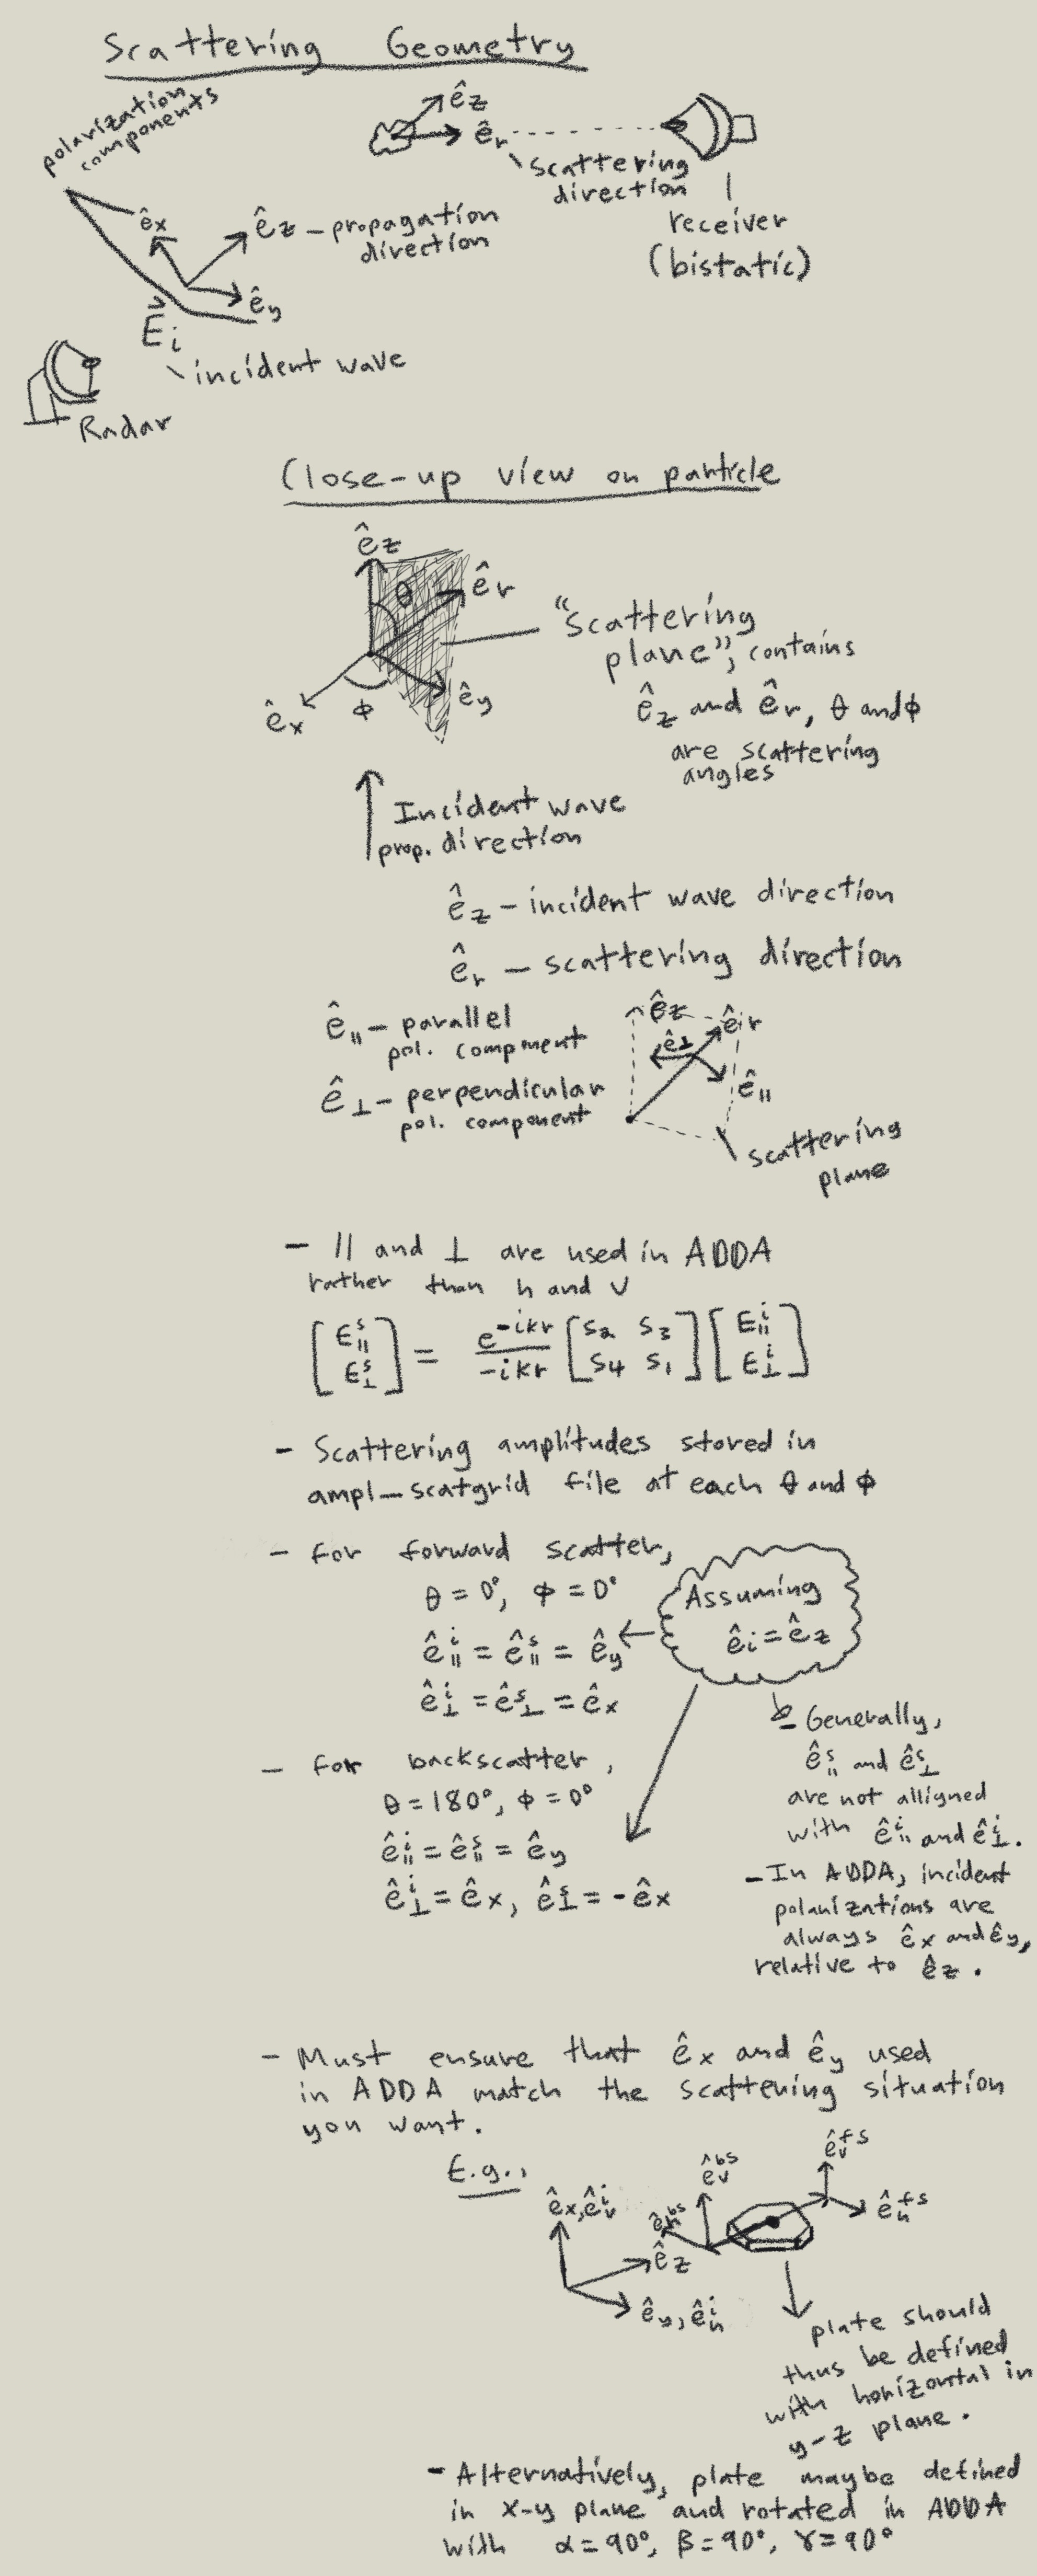 Scattering Geometry
polarization
components
ê_z
ê_r
scattering
direction
receiver
(bistatic)
ê_x
ê_z – propagation
direction
ê_y
E⃗_i
incident wave
Radar
Close-up view on particle
ê_z
θ
ê_r
"Scattering
plane", contains
ê_z and ê_r, θ and ϕ
are scattering
angles
ê_x
ϕ
ê_y
Incident wave
prop. direction
ê_z – incident wave direction
ê_r – scattering direction
ê_∥ – parallel
pol. component
ê_⊥ – perpendicular
pol. component
ê_z
ê_r
ê_⊥
ê_∥
scattering
plane
– ∥ and ⊥ are used in ADDA
rather than h and v
[E_∥^s E_⊥^s] = e^{-ikr}/(-ikr) [S_2 S_3 S_4 S_1] [E_∥^i E_⊥^i]
– Scattering amplitudes stored in
ampl_scatgrid file at each θ and ϕ
– for forward scatter,
θ = 0°, ϕ = 0°
ê_∥^i = ê_∥^s = ê_y
ê_⊥^i = ê_⊥^s = ê_x
Assuming
ê_i = ê_z
– for backscatter,
θ = 180°, ϕ = 0°
ê_∥^i = ê_∥^s = ê_y
ê_⊥^i = ê_x, ê_⊥^s = -ê_x
– Generally,
ê_∥^s and ê_⊥^s
are not alligned
with ê_∥^i and ê_⊥^i.
– In ADDA, incident
polarizations are
always ê_x and ê_y,
relative to ê_z.
– Must ensure that ê_x and ê_y used
in ADDA match the scattering situation
you want.
E.g.,
ê_x, ê_v^i
ê_z
ê_y, ê_h^i
ê_h^bs
ê_v^bs
ê_v^fs
ê_h^fs
plate should
thus be defined
with horizontal in
y-z plane.
– Alternatively, plate maybe defined
in x-y plane and rotated in ADDA
with α = 90°, β = 90°, γ = 90°